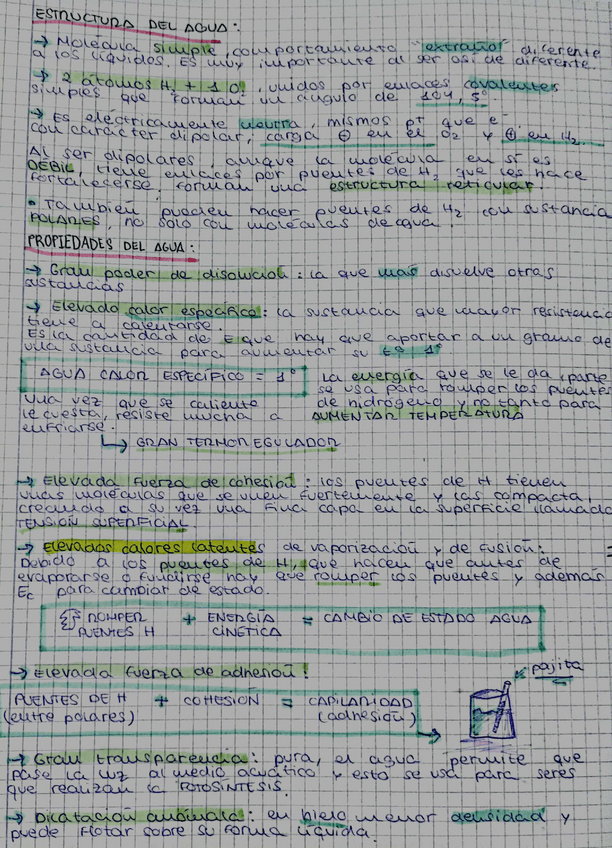 ESTRUCTURA DEL AGUA:
→ Molécula simple, comportamiento "extraño" diferente
a los líquidos. ES muy importante al ser así de diferente.
→ 2 átomos H₂ + 1 O, unidos por enlaces covalentes
simples que forman un ángulo de 104,5°
→ Es eléctricamente neutra, mismos pt que e⁻
con carácter dipolar, carga ⊖ en el O₂ y ⊕ en H₂.
Al ser dipolares, aunque la molécula en sí es
DÉBIL, tiene enlaces por puentes de H₂ que les hace
fortalecerse. Forman una estructura reticular.
• También pueden hacer puentes de H₂ con sustancia
POLARES, no solo con moléculas de agua.
PROPIEDADES DEL AGUA:
→ Gran poder de disolución: la que más disuelve otras
sustancias
→ Elevado calor específico: la sustancia que mayor resistencia
tiene a calentarse.
Es la cantidad de E que hay que aportar a un gramo de
una sustancia para aumentar su tº 1°
AGUA CALOR ESPECÍFICO = 1°
La energía que se le da, parte
se usa para romper los puentes
de hidrógeno y no tanto para
AUMENTAR TEMPERATURA
una vez que se caliente
le cuesta, resiste mucha a
enfriarse.
↳ GRAN TERMORREGULADOR
→ Elevada fuerza de cohesión: los puentes de H tienen
unas moléculas que se unen fuertemente y las compacta,
creando a su vez una fina capa en la superficie llamada
TENSIÓN SUPERFICIAL.
→ Elevados calores latentes de vaporización y de fusión:
Debido a los puentes de H, que hacen que antes de
evaporarse o fundirse hay que romper los puentes y además
Ec para cambiar de estado.
ROMPER PUENTES H + ENERGÍA CINÉTICA = CAMBIO DE ESTADO AGUA
→ Elevada fuerza de adhesión!
→ pajita
PUENTES DE H (entre polares) + COHESIÓN = CAPILARIDAD (adhesión)
→ Gran transparencia: pura, el agua permite que
pase la luz al medio acuático y esto se usa para seres
que realizan la FOTOSÍNTESIS.
→ Dilatación anómala: en hielo menor densidad y
puede flotar sobre su forma líquida.